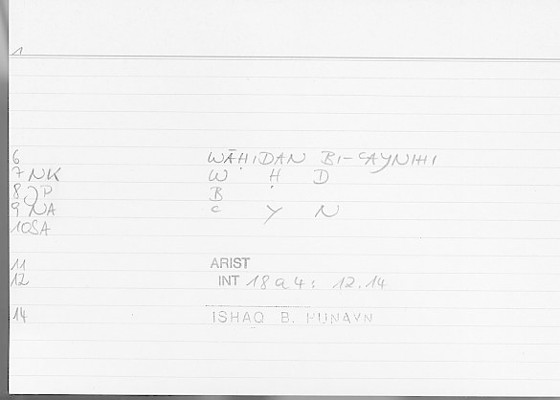 1
6 WĀḤIDAN BI-ʿAYNIHI
7 NK W Ḥ D
8 JP B
9 NA ʿ Y N
10 SA
11 ARIST
12 INT 18 a 4 : 12.14
14 ISHAQ B. HUNAYN